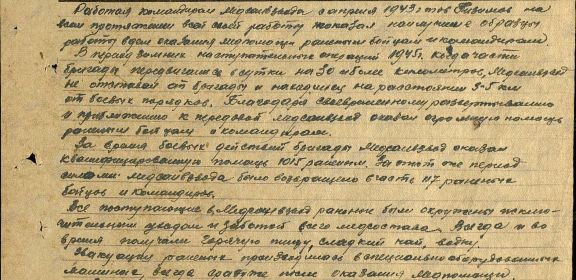 Работая командиром медсанвзвода с апреля 1943 г. тов. на
всем протяжении всей своей работы показал наилучшие образцы
работы в деле оказания медпомощи раненым бойцам и командирам
В период зимних наступательных операций 1945 г. когда части
бригады передвигались в сутки на 30 и более километров, Медсанвзвод
не отставал от бригады и находился на расстоянии 3-5 км
от боевых порядков. Благодаря своевременному развертыванию
и приближению к передовой медсанвзвод оказал огромную помощь
раненым бойцам и командирам.
За время боевых действий бригады Медсанвзвод оказал
квалифицированную помощь 1015 раненым, За этот же период
силами медсанвзвода было возвращено в часть 117 раненых
бойцов и командиров.
Все поступающие в Медсанвзвод раненые были окружены исклю-
чительным уходом и заботой всего медсостава. Всегда и во
время получали горячую пищу, сладкий чай, водку.
Эвакуация раненых производилась в специально оборудованных
машинах, всегда сразу же после оказания медпомощи